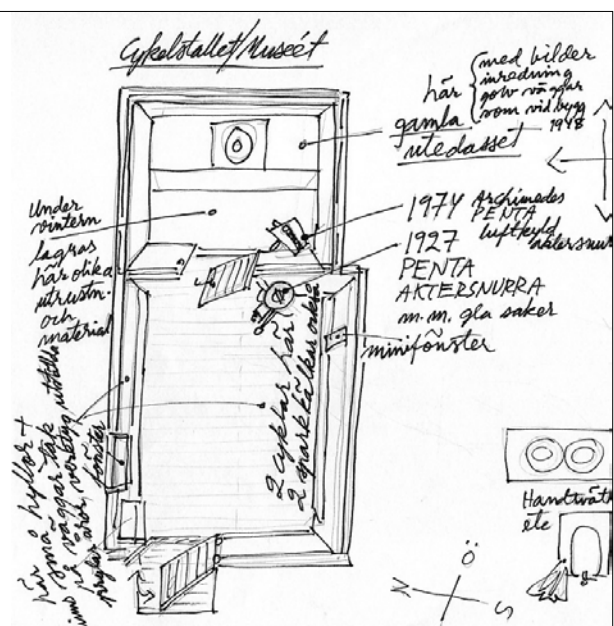 Cykelstallet/Muséet
här
med bilder
inredning
golv väggar
som vid bygg
1948
gamla
utedasset
Under
vintern
lagras
här olika
utrustn.
och
material
1974 Archimedes
PENTA
luftkyld
aktersnur
1927
PENTA
AKTERSNURRA
m.m. gla saker
minifönster
2 cyklar här
2 sparkkälkar också
fönster
här hyllor +
små
på väggar tak
prylar åror, verktyg
Handtvätt
etc
N
Ö
S